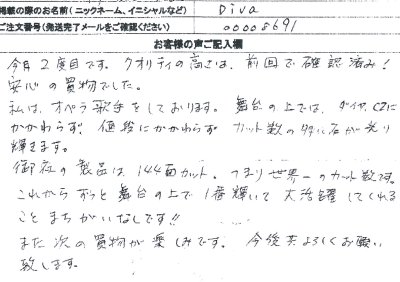 掲載の際のお名前(ニックネーム、イニシャルなど) Diva
ご注文番号(発送完了メールをご確認ください) 00008691
お客様の声ご記入欄
今月2度目です。クオリティの高さは、前回で確認済み!
安心の買物でした。
私は、オペラ歌手をしております。舞台の上では、ダイヤ、CZに
かかわらず、値段にかかわらず カット数の多い石が光り
輝きます。
御社の製品は144面カット。つまり世界一のカット数です。
これからずっと舞台の上で1番輝いて大活躍してくれる
ことまちがいなしです!!
また次の買物が楽しみです。今後共よろしくお願い
致します。